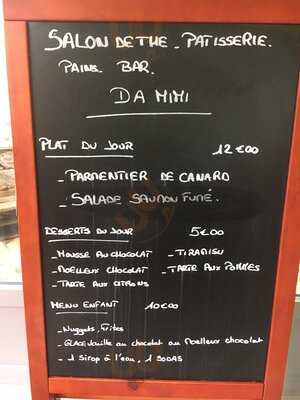 SALON DE THE - PATISSERIE.
PAINS. BAR.
DA MIMI
PLAT DU JOUR 12€00
- PARMENTIER DE CANARD
- SALADE SAUMON FUMÉ.
DESSERTS DU JOUR 5€00
- MOUSSE AU CHOCOLAT - TIRAMISU
- MOELLEUX CHOCOLAT - TARTE AUX POMMES
- TARTE AUX CITRONS
MENU ENFANT 10€00
- Nuggets, frites
- GLACE vanille au chocolat ou Moelleux chocolat
- 1 Sirop à l'eau, 1 SODAS